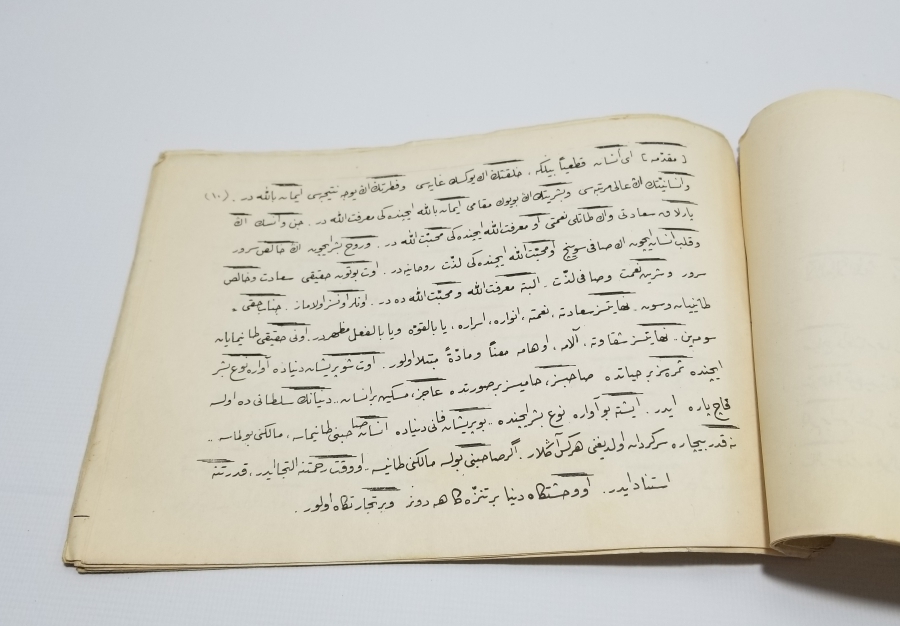 [ مقدّمه ] اى انسان قطعياً بيلكه ، خلقتك اك يوكسك غايه‌سى وفطرتك اك يوجه نتيجه‌سى ايمان باللّٰه در . (١٠)
وانسانيتك اك عالى مرتبه‌سى وبشريتك اك بويوك مقامى ايمان باللّٰه ايچنده‌كى معرفت اللّٰه در . جن وانسك اك
پارلاق سعادتى واك طاتلى نعمتى او معرفت اللّٰه ايچنده‌كى محبّت اللّٰه در . وروح بشر ايچون اك خالص سرور
وقلب انسان ايچون اك صافى سوينج او محبّت اللّٰه ايچنده‌كى لذّت روحانيه در . اوت بوتون حقيقى سعادت وخالص
سرور وشيرين نعمت وصافى لذّت . البته معرفت اللّٰه ومحبّت اللّٰه ده در . اونلر اونسز اولاماز . جناب حقى
طانييان وسون . نهايتسز سعادته ، نعمته ، انواره ، اسراره ، يا بالقوّه ويا بالفعل مظهردر . اونى حقيقى طانيمايان
سومه‌ين . نهايتسز شقاوته ، آلامه ، اوهامه معناً ومادّةً مبتلا اولور . اوت شو پريشان دنياده آواره نوع بشر
ايچنده ثمره‌سز بر حياتده صاحبسز ، حاميسز بر صورتده عاجز ، مسكين بر انسان .. دنيانك سلطانى ده اولسه
قاچ پاره ايدر . ايشته بو آواره نوع بشر ايچنده .. بو پريشان فانى دنياده انسان صاحبنى طانيماسه ، مالكنى بولماسه ..
نه قدر بيچاره سركردان اولديغنى هركس آكلار . اگر صاحبنى بولسه مالكنى طانيسه .. اووقت رحمتنه التجا ايدر ، قدرتنه
استناد ايدر . او وحشتگاه دنيا بر تنزّه‌گاهه دونر وبر تجارتگاه اولور .